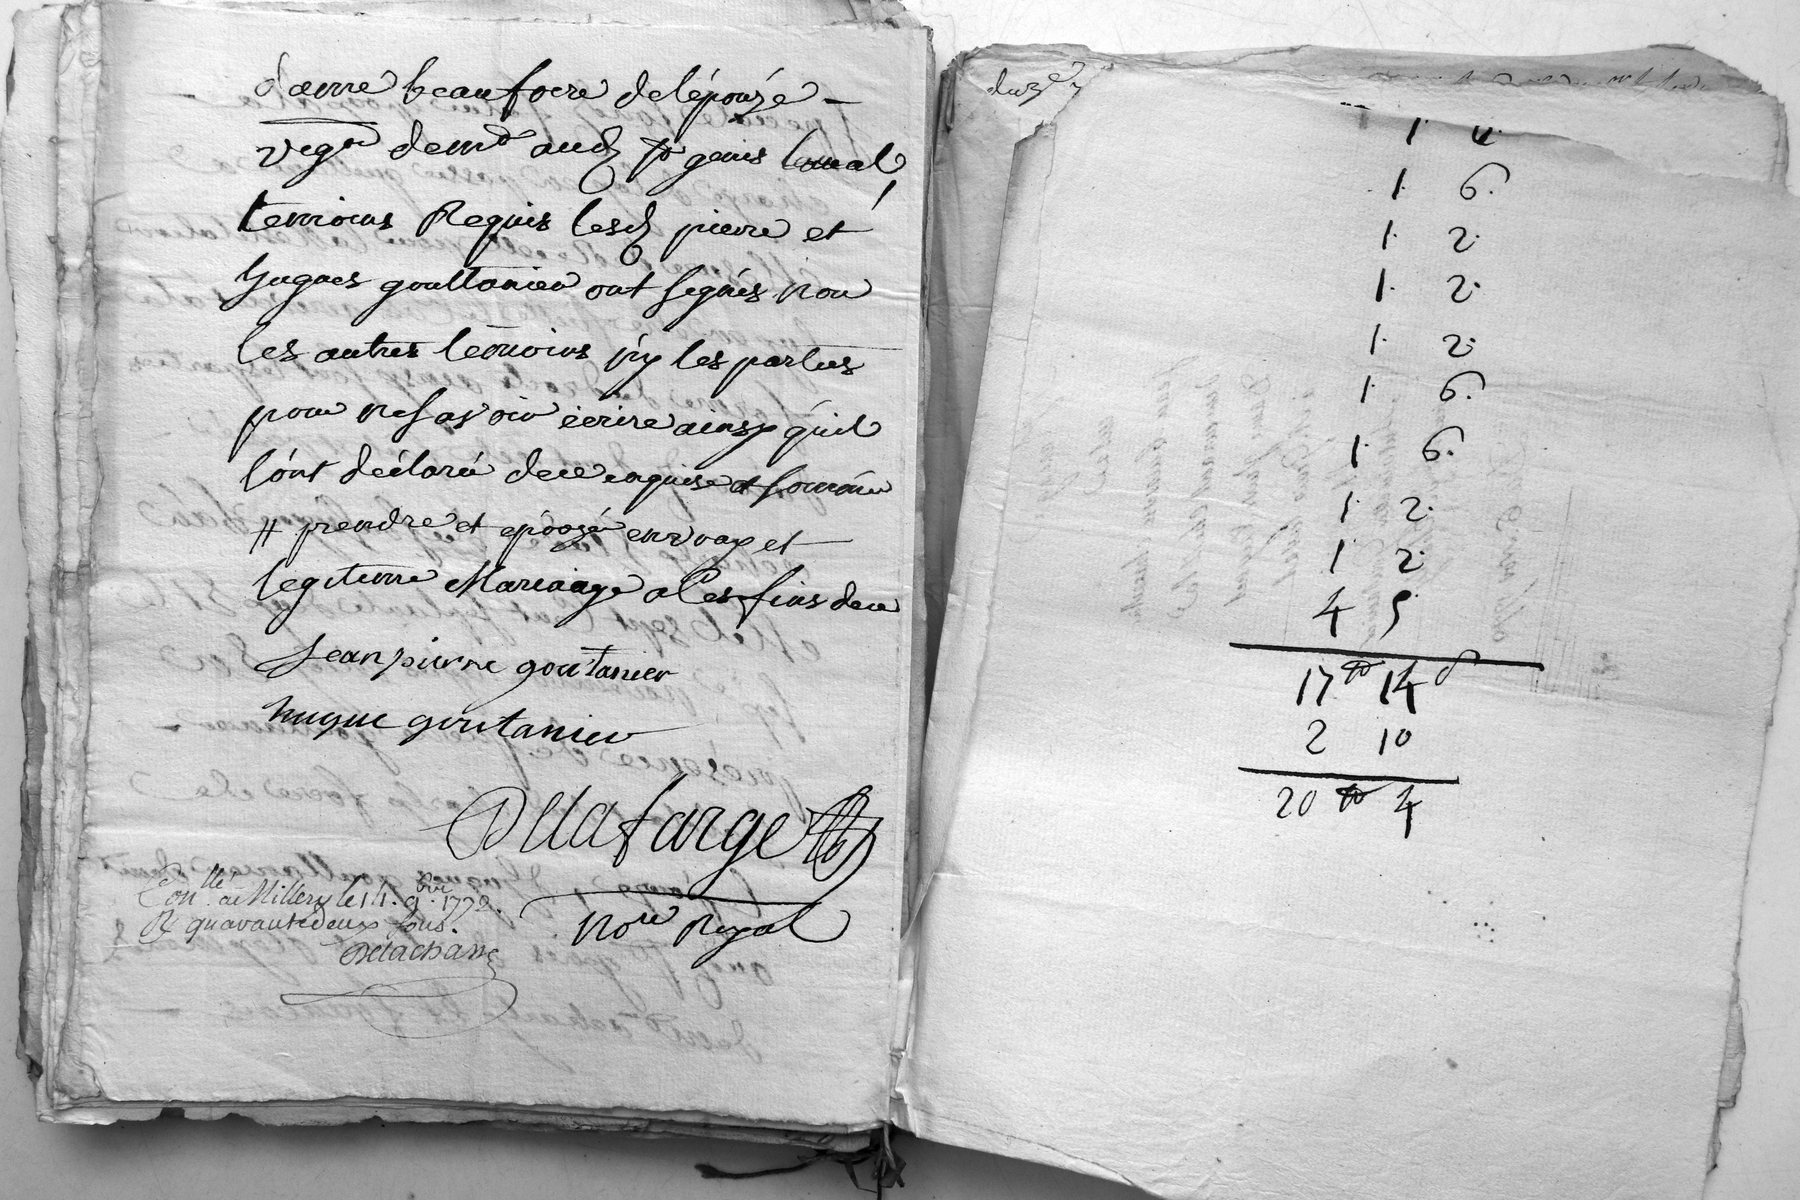 d'autre beaufrere de l'épouze
vig.on dem.t aud. st genis laval
temoins Requis lesd pierre et
hugues gouttanier ont signés non
les autres temoins ny les parties
pour ne savoir ecrire ainsy quil
lont declaré de ce enquis et sommés
# prendre et epouzé en vray et
legitime Mariage a Ces fins de ce
Jean pierre goutanier
hugue goutanier
Delafarge
No.re Royal
Con.llé a Millery le 11. 9.bre 1772.
R quarante deux sous.
Delachass
1 6.
1 2.
1 2.
1 2.
1 6.
1 6.
1 2.
1 2.
4 5
17 tt 14 d
2 10
20 tt 4